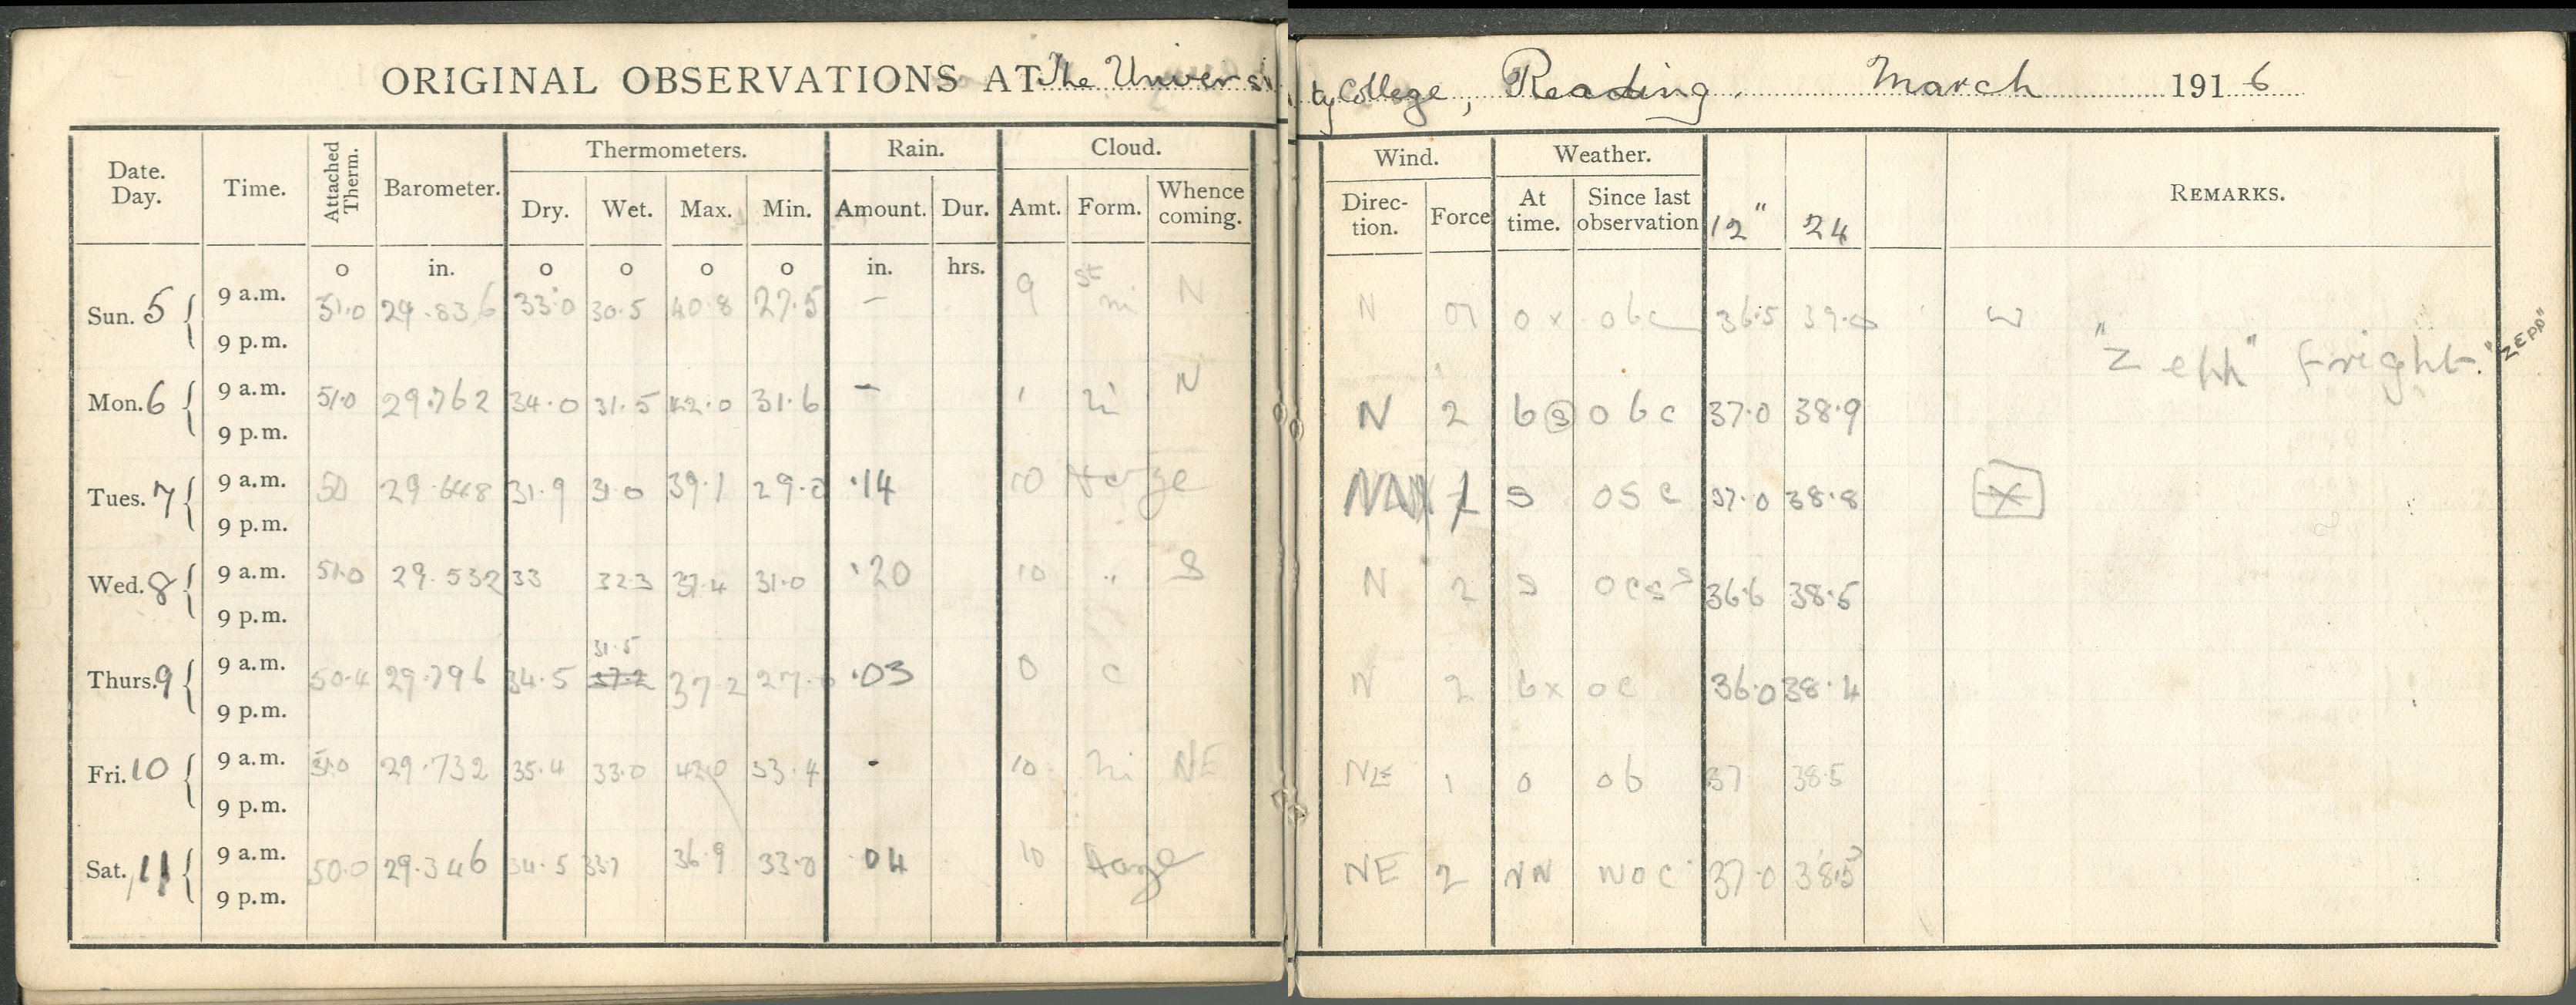 ORIGINAL OBSERVATIONS AT The University College, Reading. March 1916
Date. Day. Time. Attached Therm. Barometer. Thermometers. Rain. Cloud. Wind. Weather. REMARKS.
Dry. Wet. Max. Min. Amount. Dur. Amt. Form. Whence coming. Direc- tion. Force At time. Since last observation 12" 24
o in. o o o o in. hrs.
Sun. 5 9 a.m. 51.0 29.836 33.0 30.5 40.8 27.5 — 9 st ni N N o x obc 36.5 39.0 ω
9 p.m. "Zepp" Fright. "ZEPP"
Mon. 6 9 a.m. 51.0 29.762 34.0 31.5 42.0 31.6 — 1 ni N N 2 b s o b c 37.0 38.9
9 p.m.
Tues. 7 9 a.m. 50 29.648 31.9 31.0 39.1 29.0 .14 10 Haze 1 s o s c 37.0 38.8
9 p.m.
Wed. 8 9 a.m. 51.0 29.532 33 32.3 37.4 31.0 .20 10 " S N 2 s o c s s 36.6 38.5
9 p.m.
31.5
Thurs. 9 9 a.m. 50.4 29.796 34.5 37.2 37.2 27.0 .03 0 c N 2 b x o c 36.0 38.4
9 p.m.
Fri. 10 9 a.m. 51.0 29.732 35.4 33.0 42.0 33.4 - 10 ni NE NE 1 o o b 37 38.5
9 p.m.
Sat. 11 9 a.m. 50.0 29.346 34.5 33.7 36.9 33.0 .04 10 Haze NE 2 NN NOC 37.0 38.5
9 p.m.